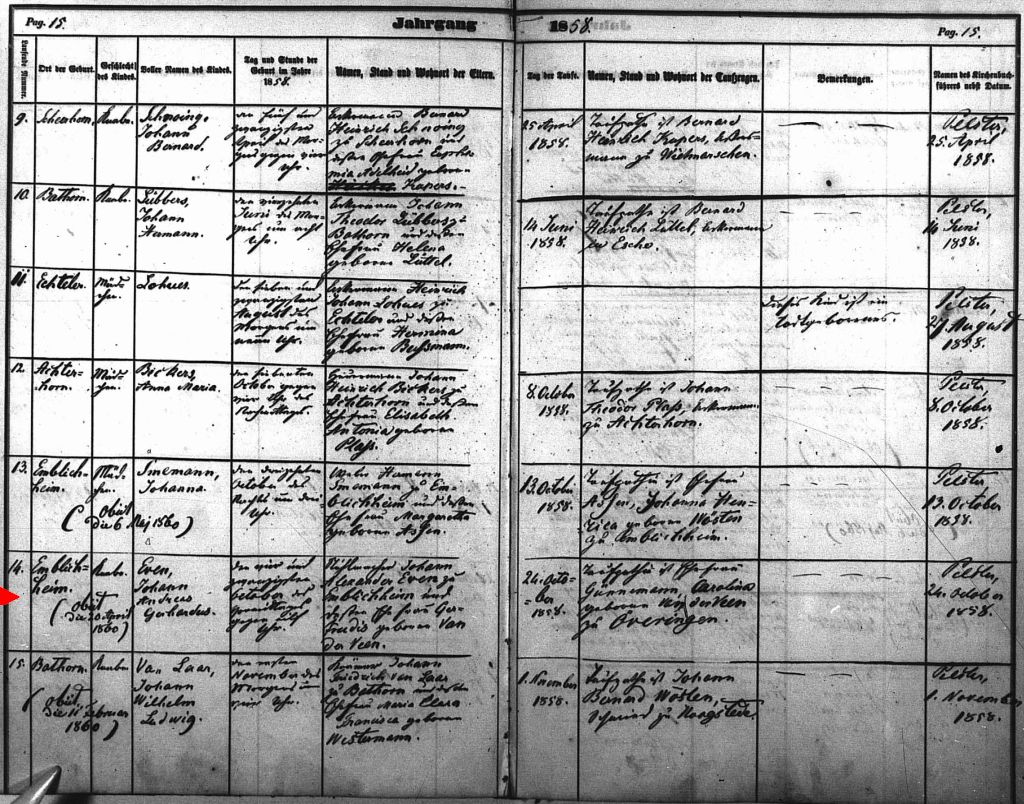 Pag. 15.
Jahrgang
1858.
Pag. 15.
Laufende Nummer.
Ort der Geburt.
Geschlecht des Kindes.
Voller Namen des Kindes.
Tag und Stunde der Geburt im Jahre 1858.
Namen, Stand und Wohnort der Eltern.
Tag der Taufe.
Namen, Stand und Wohnort der Taufzeugen.
Bemerkungen.
Namen des Kirchenbuchführers nebst Datum.
9.
Knabe.
Johann
Bernard.
den fünf und
zwanzigsten
April des Mor-
gens gegen vier
Uhr.
Bernard
Heinrich
zu
dessen Ehefrau
Adelheid geborene
Kapers.
25 April
1858.
Taufpathe ist Bernard
Heinrich Kapers,
zu Wietmarschen.
Pelster,
25. April
1858.
10.
Bathorn.
Knabe.
Lübbers,
Johann
Hermann.
den vierzehnten
Juni des Mor-
gens um acht
Uhr.
Johann
Theodor Lübbers zu
Bathorn und dessen
Ehefrau Helena
geborene Lüttel.
14 Juni
1858.
Taufpathe ist Bernard
Heinrich Lüttel,
zu Esche.
Pelster,
14 Juni
1858.
11.
Echteler.
Mäd-
chen.
Lohues.
den sieben und
zwanzigsten
August des
Morgens um
neun Uhr.
Heinrich
Johann Lohues zu
Echteler und dessen
Ehefrau Hermina
geborene Bussmann.
dieses Kind ist ein
todtgeborenes.
Pelster,
27. August
1858.
12.
Achter-
horn.
Mäd-
chen.
Beckers,
Anna Maria.
den siebenten
October gegen
vier Uhr des
Johann
Heinrich Beckers zu
Achterhorn und dessen
Ehefrau Elisabeth
Antonia geborene
Plaß.
8. October
1858.
Taufpathe ist Johann
Theodor Plaß,
zu Achterhorn.
Pelster,
8. October
1858.
13.
Emblich-
heim.
Mäd-
chen.
Imemann,
Johanna.
(obiit
die 6 Maj 1860)
den dreizehnten
October des
Nachts um drei
Uhr.
Hermann
Imemann zu Em-
blichheim und dessen
Ehefrau Margaretha
geborene Assen.
13. October
1858.
Taufpathin ist Ehefrau
Assen, Johanna Hen-
rica geborene Wösten
zu Emblichheim.
Pelster,
13. October
1858.
14.
Emblich-
heim.
Knabe.
Even,
Johann
Andreas
Gerhardus.
(obiit
die 20 April
1860)
den vier und
zwanzigsten
October des
gegen acht
Uhr.
Johann
Alexander Even zu
Emblichheim und
dessen Ehefrau Ger-
trudis geborene Van
der Veen.
24. Octo-
ber
1858.
Taufpathin ist Ehefrau
Günnemann, Carolina
geborene Van der Veen
zu Overingen.
Pelster,
24. October
1858.
15.
Bathorn.
Knabe.
Van Laar,
Johann
Wilhelm
Ludwig.
(obiit
die 11 Februar
1860)
den ersten
November des
Morgens um
vier Uhr.
Krämer Johann
Friedrich Van Laar
zu Bathorn und dessen
Ehefrau Maria Clara
Francisca geborene
Westermann.
1. November
1858.
Taufpathe ist Johann
Bernard Wösten,
zu Hoogstede.
Pelster,
1. November
1858.